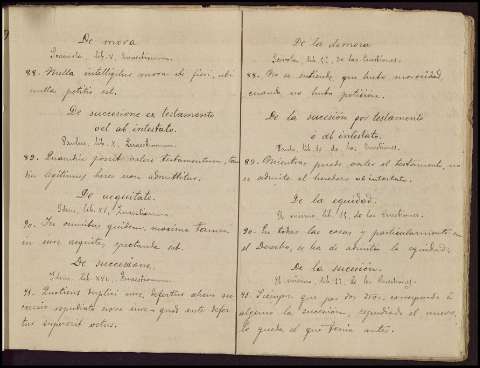 De mora
Scaevola, lib. V, Quaestionum.
88. Nulla intelligitur mora ibi fieri, ubi
nulla petitio est.
De successione ex testamento
vel ab intestato.
Paulus, lib. X, Quaestionum.
89. Quamdiu possit valere testamentum, tam
diu legitimus heres non admittitur.
De aequitate.
Idem, lib. XV, Quaestionum.
90. In omnibus quidem, maxime tamen
in iure aequitas spectanda est.
De successione.
Idem, lib. XVI, Quaestionum.
91. Quotiens duplici iure, defertur alicui suc
cessio repudiato novo iure quod ante defer
tur supererit vetus.
De la demora
Scevola, lib. de las Cuestiones.
88. No se entiende que hubo morosidad
cuando no hubo peticion.
De la sucesión por testamento
ó ab intestato.
Paulo, lib. 10 de las Cuestiones.
89. Mientras puede valer el testamento, no
se admite el heredero ab intestato.
De la equidad.
El mismo, lib. 15, de las Cuestiones.
90. En todas las cosas y particularmente en
el Derecho, se ha de atender la equidad.
De la sucesion.
El mismo, lib. 17, de las Cuestiones.
91. Siempre que por dos dros. corresponde á
alguno la sucesion, repudiado el nuevo,
le queda el que tenia antes.